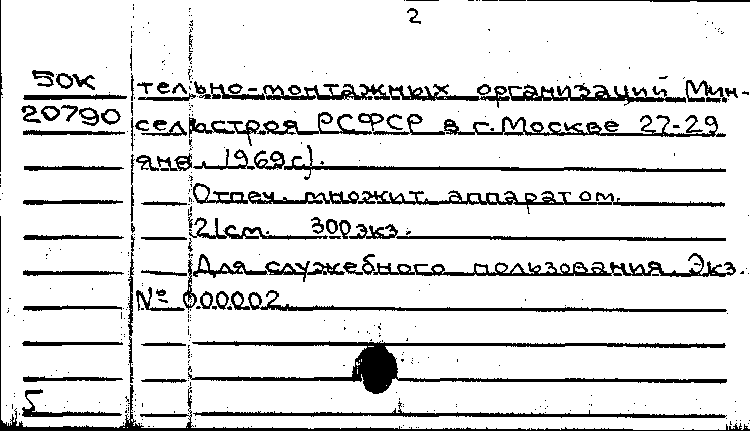 2
50К тельно-монтажных организаций Мин-
20790 сельстроя РСФСР в г. Москве 27-29
янв. 1969г).
Отпеч. множит. аппаратом.
21см. 300экз.
Для служебного пользования. Экз.
№ 000002.
5